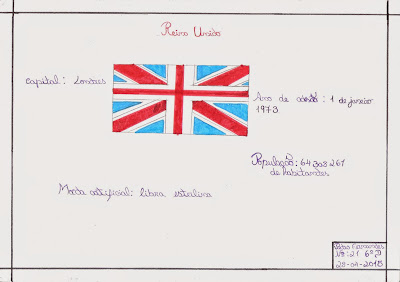 Reino Unido
Capital: Londres
Ano de : 1 de janeiro
1973
População: 64 303 261
de habitantes
Moeda : libra esterlina
Fernandes
Nº: 21 6º D
28-04-2015